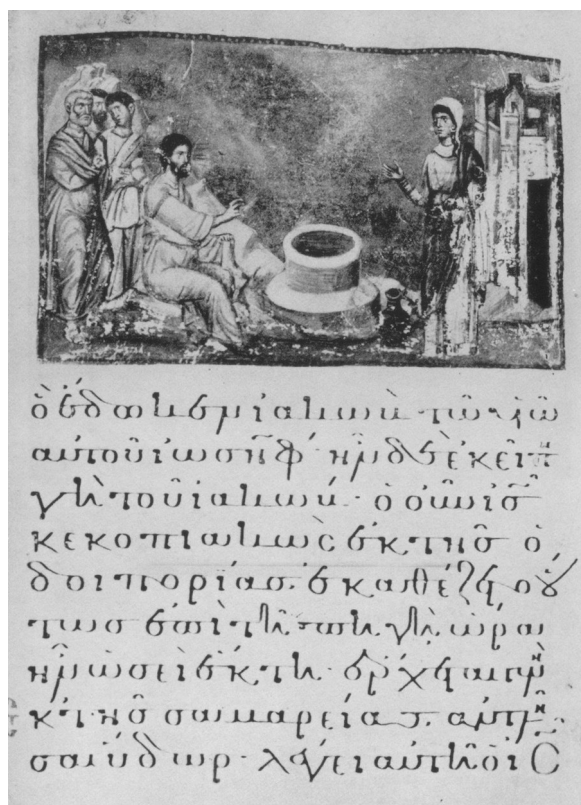 ὃ ἔδωκεν ἰακὼβ τῶ υἱῶ
αὐτοῦ ἰωσήφ· ἦν δὲ ἐκεῖ πη
γὴ τοῦ ἰακώβ· ὁ οὖν ις
κεκοπιακὼς ἐκ τῆς ὁ
δοιπορίας ἐκαθέζετο οὕ
τως ἐπὶ τῆ πηγῆ ὥρα
ἦν ὡσεὶ ἕκτη· ἔρχεται γυνὴ
ἐκ τῆς σαμαρείας ἀντλῆ
σαι ὕδωρ· λέγει αὐτῆ ὁ ις